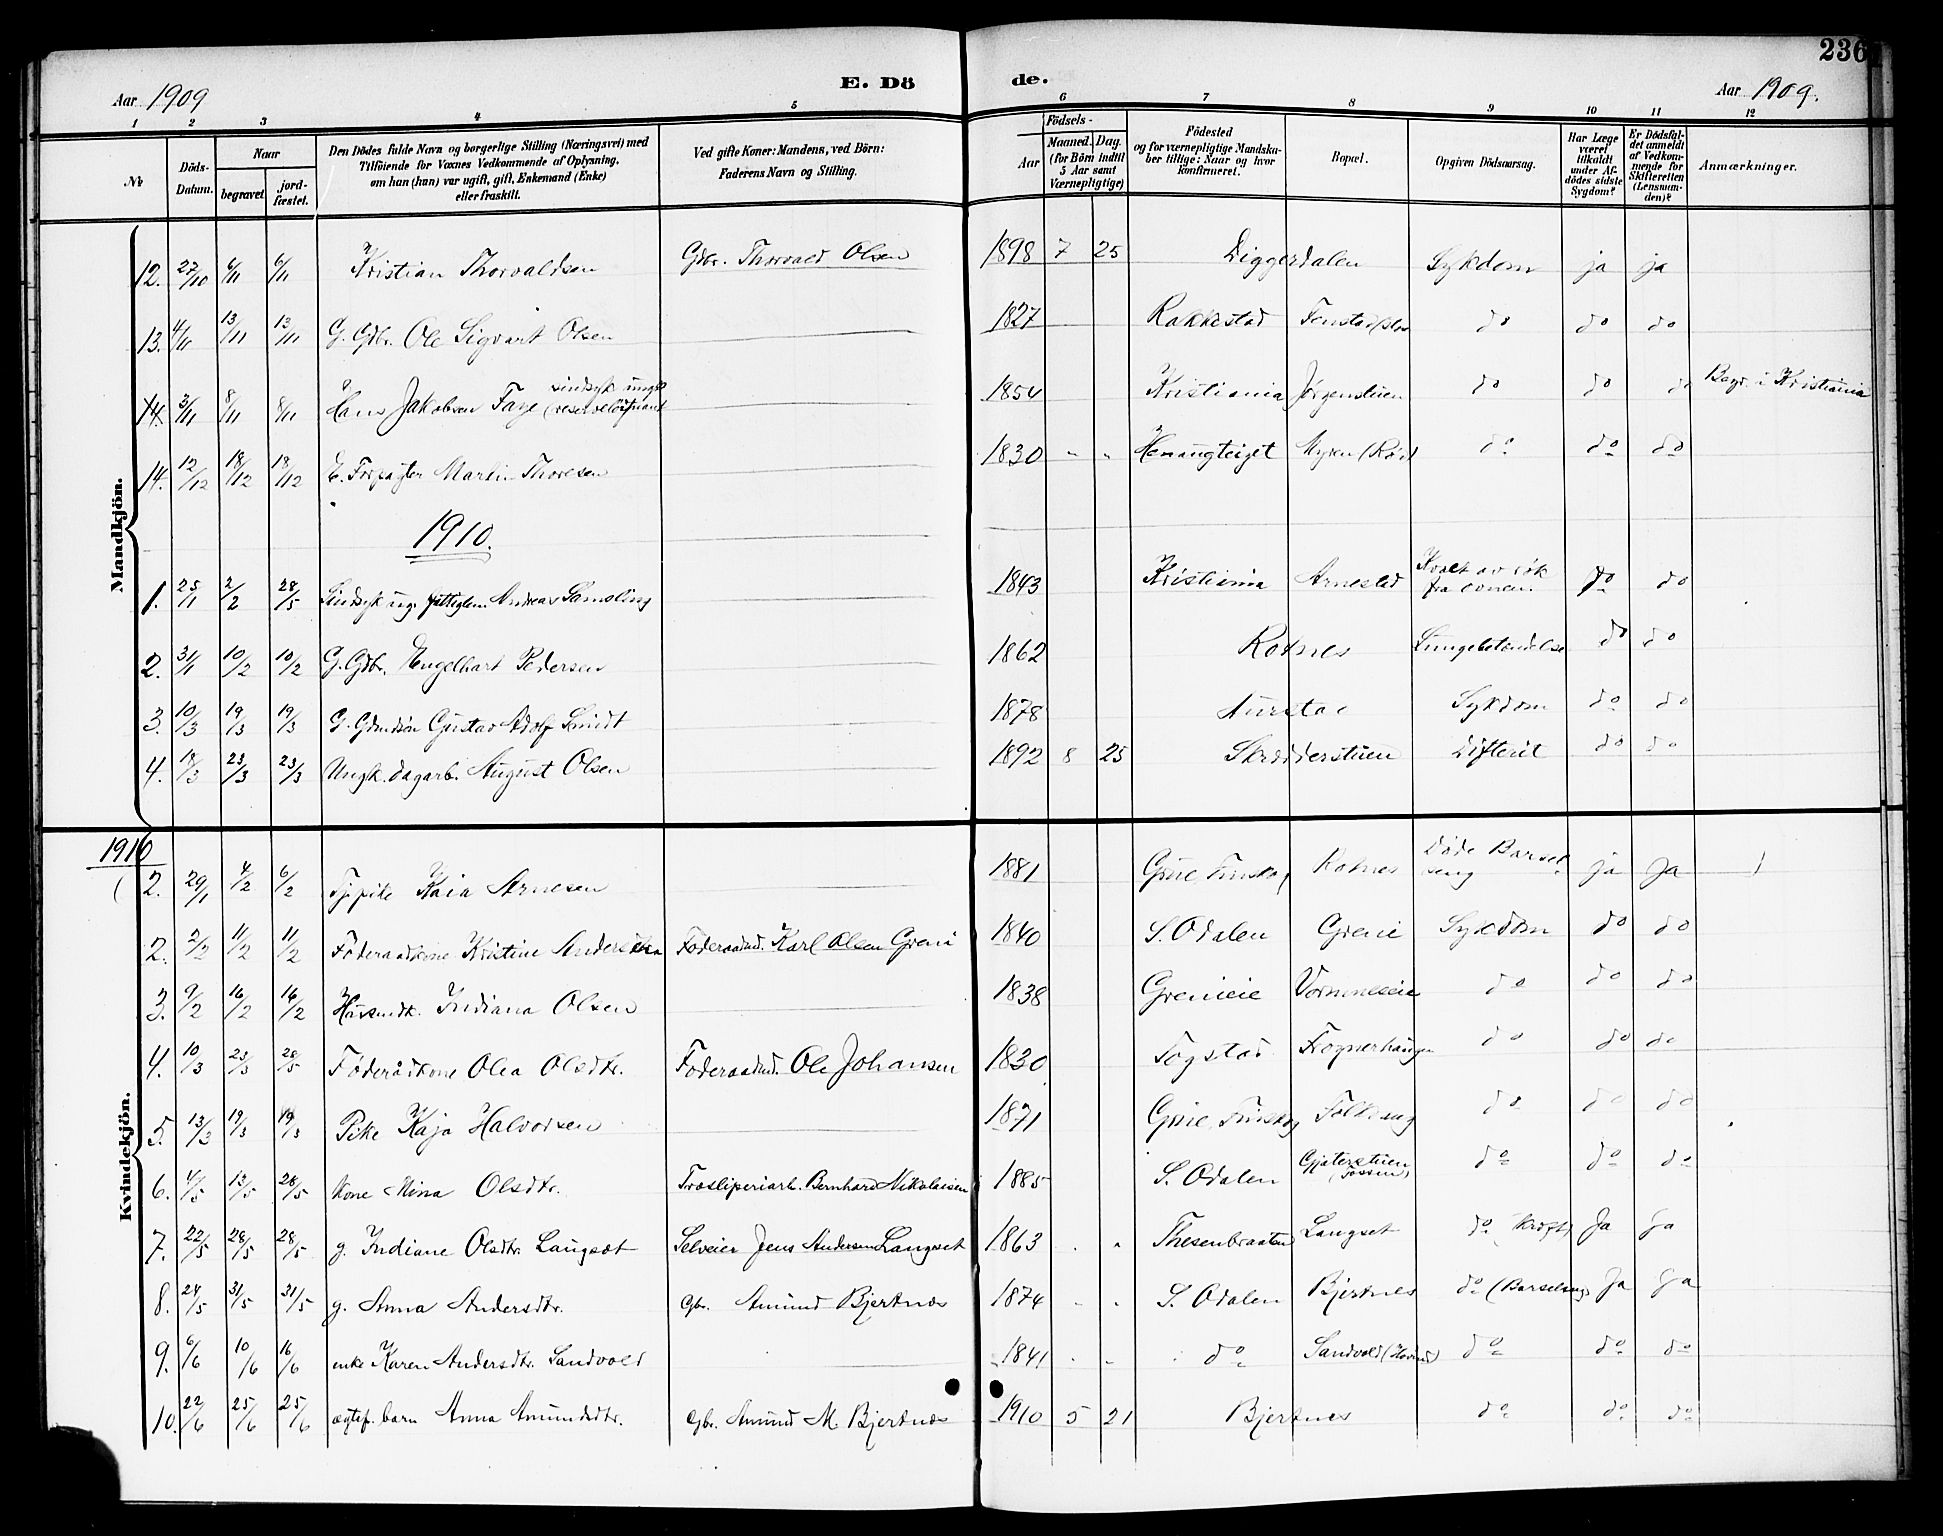 236
Aar 1909
E. Dö
de.
Aar 1909.
1 2 3 4 5 6 7 8 9 10 11 12
№
Döds-Datum.
Naar
begravet
jord-fæstet.
Den Dödes fulde Navn og borgerlige Stilling (Næringsvei) med
Tilföiende for Voxnes Vedkommende af Oplysning,
om han (hun) var ugift, gift, Enkemand (Enke)
eller fraskilt.
Ved gifte Koner: Mandens, ved Börn:
Faderens Navn og Stilling.
Födsels-
Aar
Maaned. Dag.
(for Börn indtil
5 Aar samt
Værnepligtige)
Födested
og for værnepligtige Mandska-
ber tillige: Naar og hvor
konfirmeret.
Bopæl.
Opgiven Dödsaarsag.
Har Læge
været
tilkaldt
under Af-
dödes sidste
Sygdom?
Er Dödsfal-
det anmeldt
af Vedkom-
mende for
Skifteretten
(Lensman-
den)?
Anmærkninger.
Mandkjön.
12. 27/10 6/11 6/11 Kristian Thorvaldsen Gdbr. Thorvald Olsen 1898 7 25 Diggerdalen Sykdom ja ja
13. 4/11 13/11 13/11 G. Gdbr. Ole Sigvart Olsen 1827 Rakkestad Fenstad do do do
14. 3/11 8/11 8/11 Hans Jakobsen Faye (sindsyk ungk. reserveløitnant 1854 Kristiania Jørgenstuen do do do Begr. i Kristiania
14. 12/12 18/12 18/12 E. Forpagter Martin Thoresen 1830 " " Henaugteiget Myren do do do
1910.
1. 25/1 2/2 28/5 Sindsyk ug. Andreas Samsling 1843 Kristiania Arnestad Kvalt av røk fra ovnen. do do
2. 31/1 10/2 10/2 G. Gdbr. Engelhart Pedersen 1862 Rotnes Lungebetændelse do do
3. 10/3 19/3 19/3 G. Gdmdsøn Gustav Adolf Smidt 1878 Aurstad Sykdom do do
4. 18/3 23/3 23/3 Ungk. dagarb. August Olsen 1892 8 25 Skrædderstuen Difterit do do
Kvindekjön.
1910
2. 29/1 4/2 6/2 Tjpike Kaia Arnesen 1881 Grue Finskog Rotnes Døde Barselseng ja Ja
2. 2/2 11/2 11/2 Føderaadkone Kristine Andersdtr. Føderaadmd. Karl Olsen Greni 1840 S. Odalen Greni Sykdom do do
3. 9/2 16/2 16/2 Husmdk. Indiana Olsen 1838 Grenieie Vormneseie do do do
4. 10/3 23/3 28/5 Føderådkone Olea Olsdtr. Føderaadmd. Ole Johansen 1830 Fogstad Frognerhaugen do do do
5. 13/3 19/3 19/3 Pike Kaja Halvorsen 1871 Grue Finskog Folkvang do do do
6. 4/5 13/5 28/5 Kone Mina Olsdtr. Træsliperiarb. Bernhard Nikolaisen 1885 S. Odalen Gjeterstuen (Fossum) do do do
7. 22/5 28/5 28/5 g. Indiane Olsdtr. Langset Selveier Jens Andersen Langset 1863 " " Thesenbraaten Langset do (Kræft) Ja Ja
8. 24/5 31/5 31/5 g. Anna Andersdtr. Gbr. Amund Bjertnes 1874 " " S. Odalen Bjertnes do (Barselseng) Ja Ja
9. 6/6 10/6 16/6 enke Karen Andersdtr. Sandvold 1841 " " do Sandvold (Hovind) do do do
10. 22/6 25/6 25/6 ægtef. barn Anna Amundsdtr. Gbr. Amund M. Bjertnes 1910 5 21 Bjertnes do do do